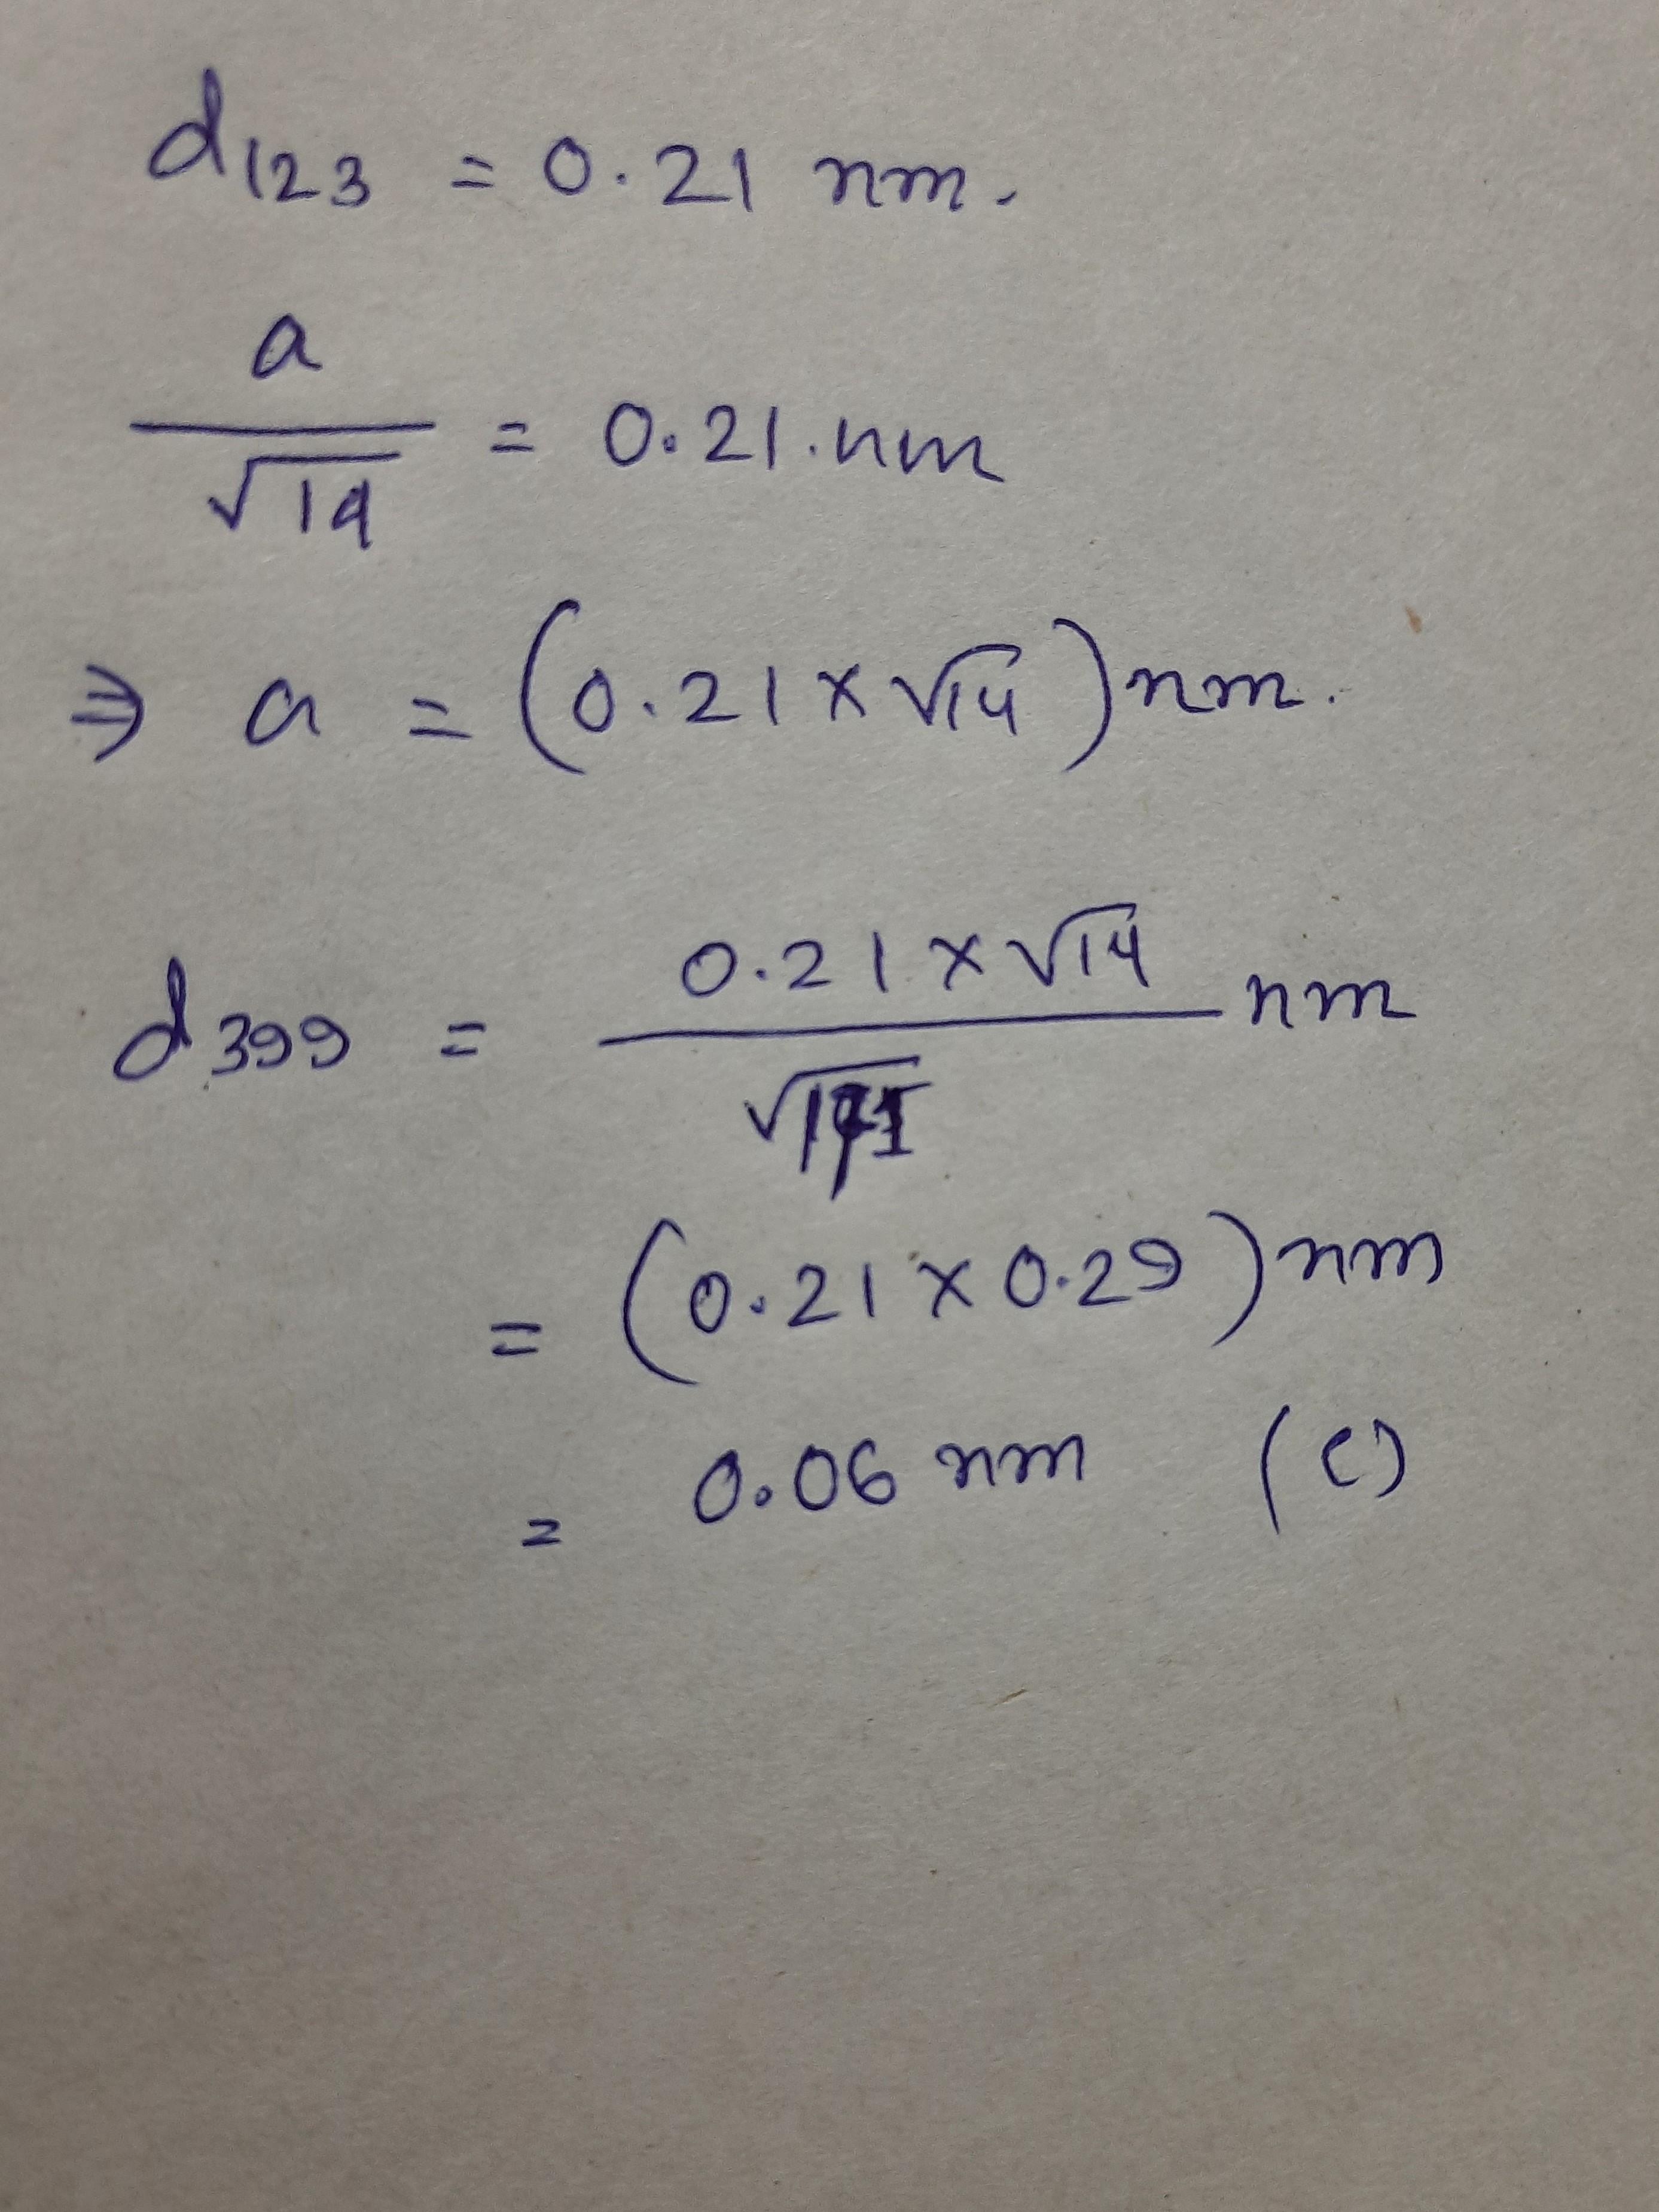 d₁₂₃ = 0.21 nm.
a/√14 = 0.21.nm
⇒ a = (0.21 × √14) nm.
d₃₉₉ = (0.21 × √14)/√171 nm
= (0.21 × 0.29) nm
= 0.06 nm (C)